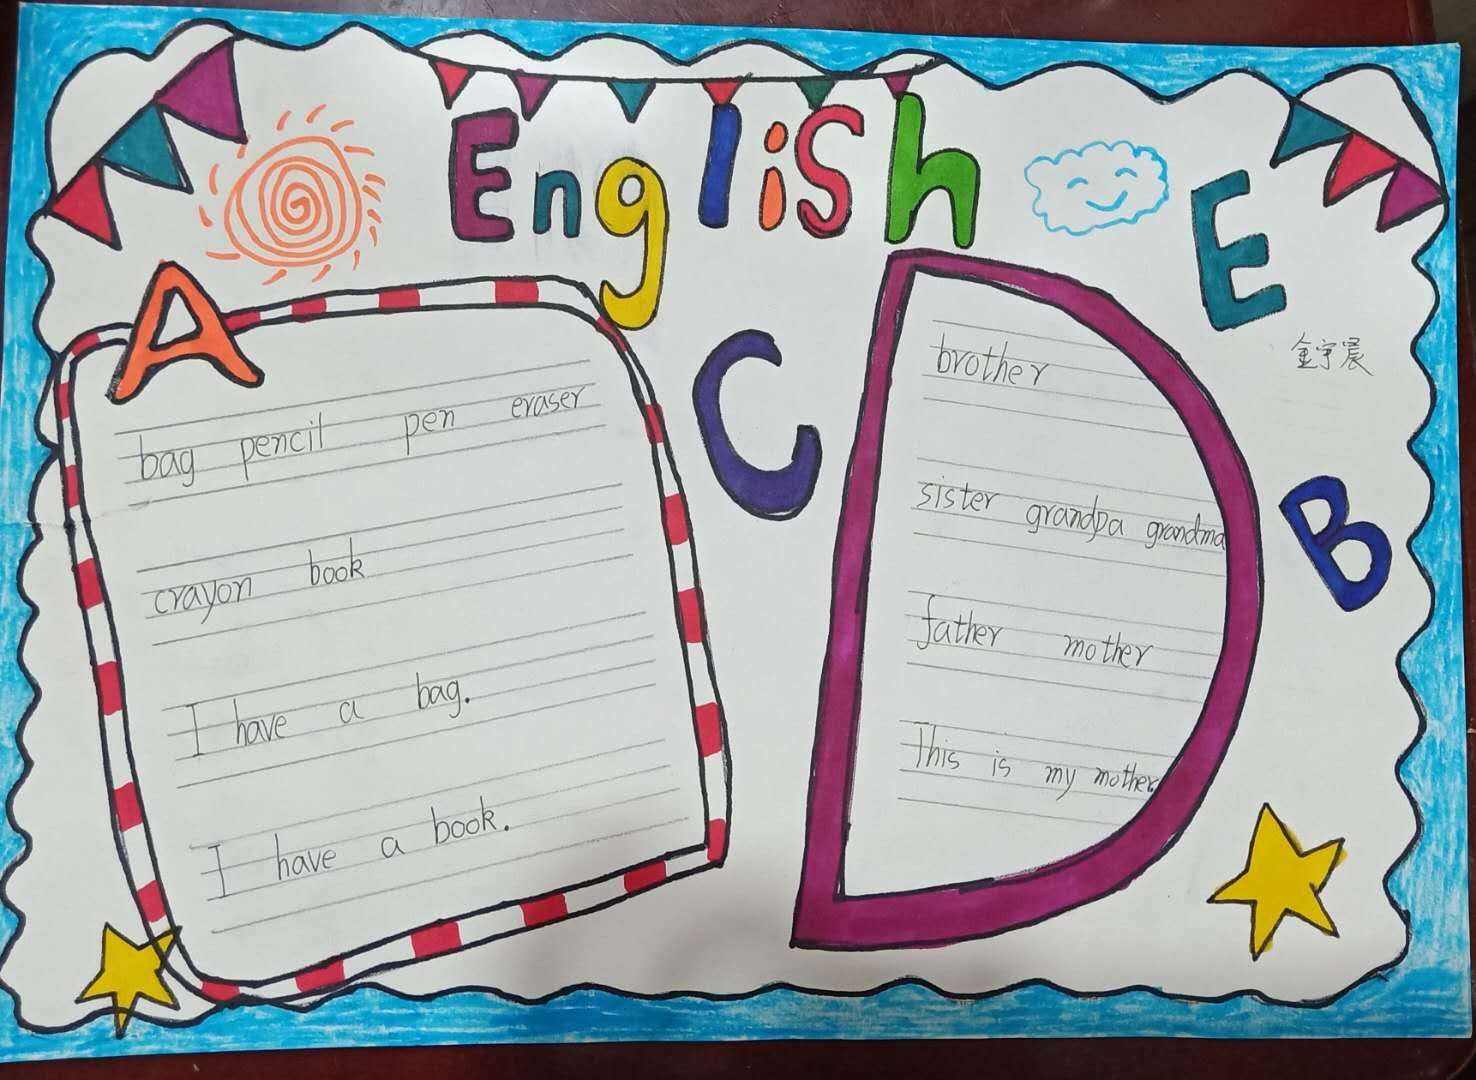 English
A
bag pencil pen eraser
crayon book
I have a bag.
I have a book.
C
D
brother
sister grandpa grandma
father mother
This is my mother.
E
金宇晨
B